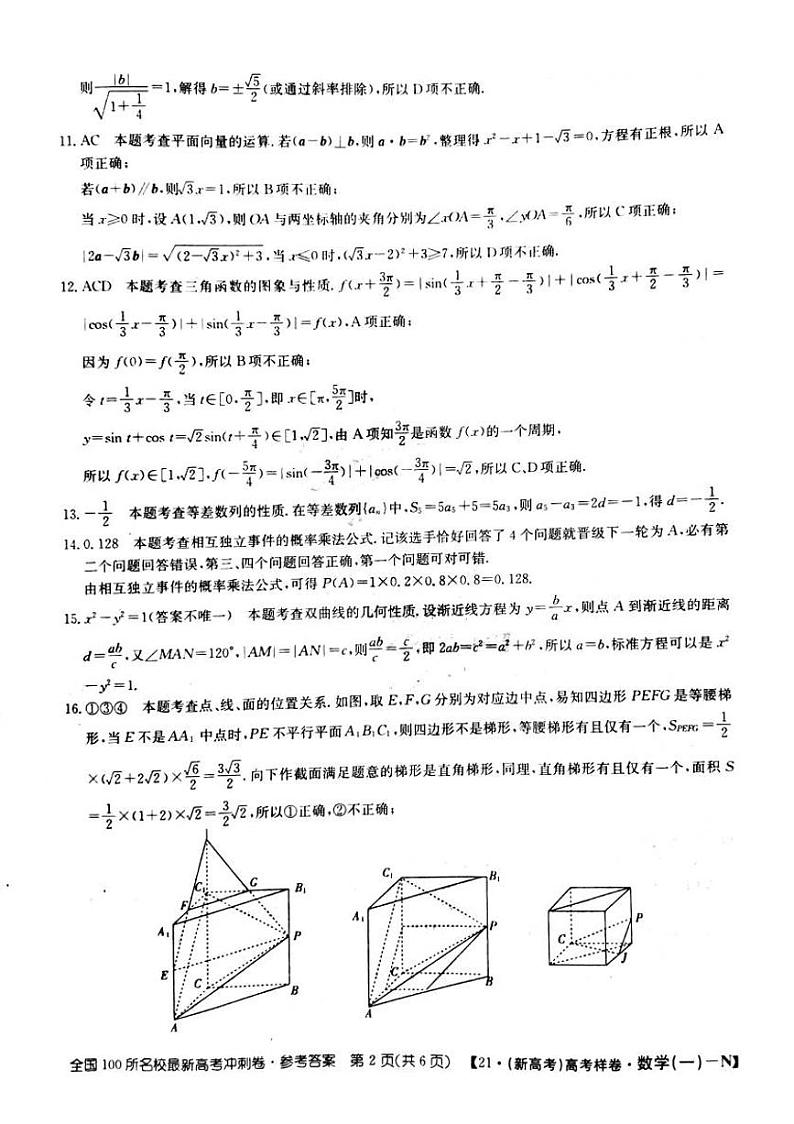 则|b|/√(1+1/4)=1,解得 b=±√5/2(或通过斜率排除),所以 D项不正确.
11. AC 本题考查平面向量的运算.若(a-b)⊥b,则 a·b=b²,整理得 x²-x+1-√3=0,方程有正根,所以 A
项正确;
若(a+b)∥b,则√3x=1,所以 B项不正确;
当 x≥0 时,设 A(1,√3),则 OA 与两坐标轴的夹角分别为∠xOA=π/3,∠yOA=π/6,所以 C 项正确;
|2a-√3b|=√((2-√3x)²+3),当 x≤0 时,(√3x-2)²+3≥7,所以 D项不正确.
12. ACD 本题考查三角函数的图象与性质.f(x+3π/2)=|sin(1/3x+π/2-π/3)|+|cos(1/3x+π/2-π/3)|=
|cos(1/3x-π/3)|+|sin(1/3x-π/3)|=f(x),A 项正确;
因为 f(0)=f(π/2),所以 B项不正确;
令 t=1/3x-π/3,当 t∈[0,π/2],即 x∈[π,5π/2]时,
y=sin t+cos t=√2sin(t+π/4)∈[1,√2],由 A 项知3π/2是函数 f(x)的一个周期,
所以 f(x)∈[1,√2],f(-5π/4)=|sin(-3π/4)|+|cos(-3π/4)|=√2,所以 C、D项正确.
13. -1/2 本题考查等差数列的性质.在等差数列{aₙ}中,S₅=5a₅+5=5a₃,则 a₅-a₃=2d=-1,得 d=-1/2.
14. 0.128 本题考查相互独立事件的概率乘法公式.记该选手恰好回答了 4 个问题就晋级下一轮为 A,必有第
二个问题回答错误,第三、四个问题回答正确,第一个问题可对可错.
由相互独立事件的概率乘法公式,可得 P(A)=1×0.2×0.8×0.8=0.128.
15. x²-y²=1(答案不唯一) 本题考查双曲线的几何性质.设渐近线方程为 y=b/a x,则点 A 到渐近线的距离
d=ab/c,又∠MAN=120°,|AM|=|AN|=c,则ab/c=c/2,即 2ab=c²=a²+b²,所以 a=b,标准方程可以是 x²
-y²=1.
16. ①③④ 本题考查点、线、面的位置关系.如图,取 E,F,G 分别为对应边中点,易知四边形 PEFG 是等腰梯
形,当 E 不是 AA₁ 中点时,PE 不平行平面 A₁B₁C₁,则四边形不是梯形,等腰梯形有且仅有一个,S_PEFG=1/2
×(√2+2√2)×√6/2=3√3/2.向下作截面满足题意的梯形是直角梯形,同理,直角梯形有且仅有一个,面积 S
=1/2×(1+2)×√2=3/2√2,所以①正确,②不正确;
C₁ G B₁ F A₁ P E C B A
C₁ B₁ A₁ P C B A
P C J
全国 100 所名校最新高考冲刺卷·参考答案 第 2 页(共 6 页) 【21·(新高考)高考样卷·数学(一)-N】